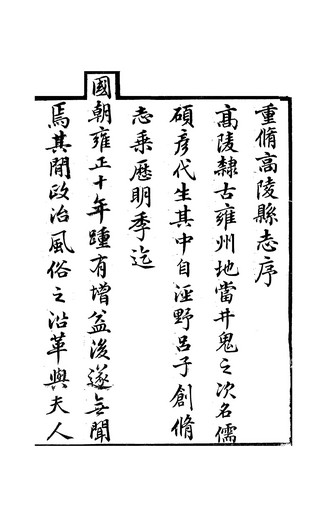 重脩高陵縣志序
高陵隸古雍州地當井鬼之次名儒
碩彥代生其中自涇野呂子創脩
志乘歷明季迄
國朝雍正十年踵有增益後遂無聞
焉其閒政治風俗之沿革與夫人